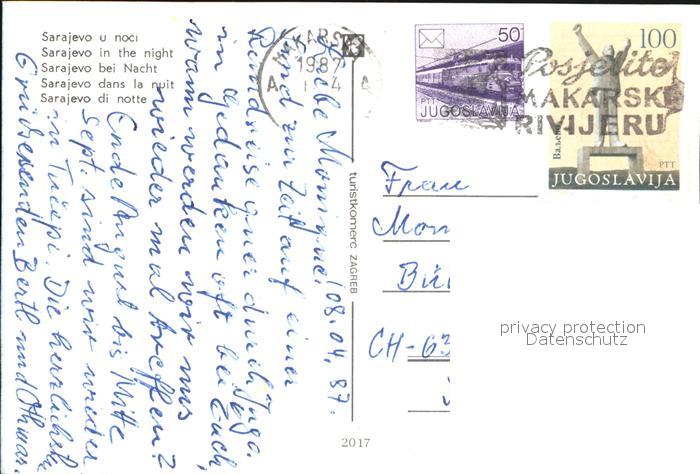 Sarajevo u noći
Sarajevo in the night
Sarajevo bei Nacht
Sarajevo dans la nuit
Sarajevo di notte
MAKARSKA
1987
A A
50
PTT
JUGOSLAVIJA
100
Ваљево
PTT
JUGOSLAVIJA
Posjetite
MAKARSKU
RIVIJERU
08.04.87.
Liebe Monique!
Sind zur Zeit auf einer
Rundreise quer durch Juga.
in Gedanken oft bei Euch,
wann werden wir uns
wieder mal treffen?
Ende August bis Mitte
Sept. sind wir wieder
in Tučepi. Die herrlichsten
Grüße senden Bertl und Othmar.
turistkomerc ZAGREB
Frau
Mon
CH-63
2017
privacy protection
Datenschutz